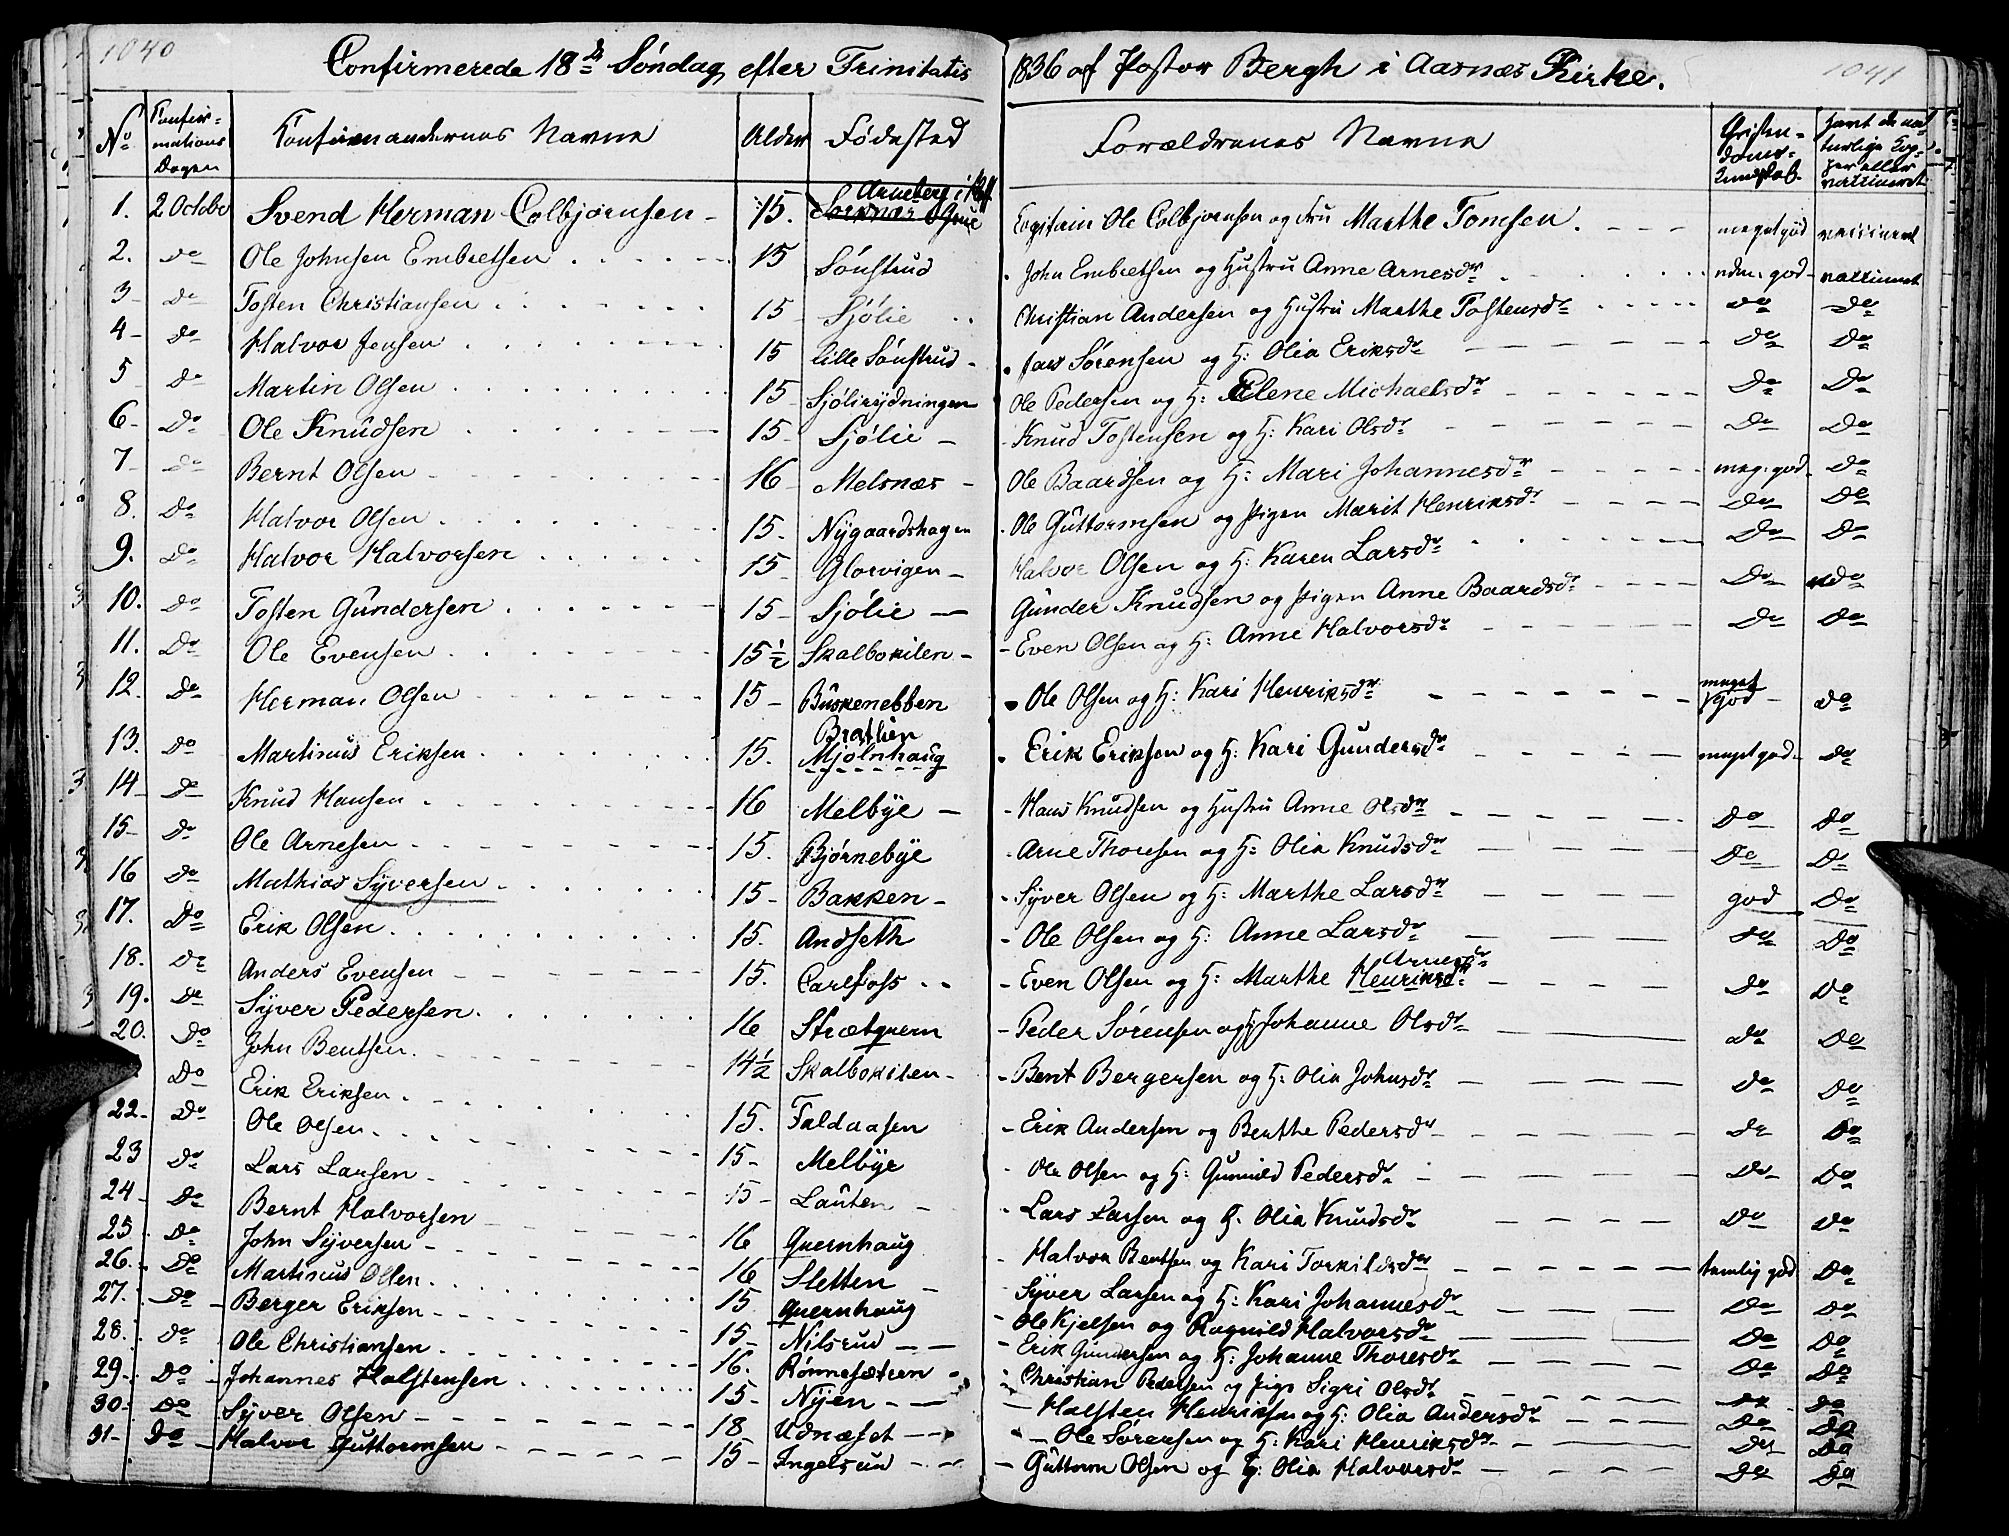 1040
1041
Confirmerede 18de Søndag efter Trinitatis 1836 af Pastor Bergh i Aasnæs Kirke.
No Confirmations Dagen Confirmandernes Navne Alder Fødested Forældrenes Navne Christendoms Kundskab. samt de naturlige Kopper eller vaccineret
1. 2 October Svend Herman Colbjørnsen 15. Sorknæs Grue Arneberg i Capitain Ole Colbjørnsen og Fru Marthe Tomsen. meget god vaccineret
2. do Ole Johnsen Embretsen 15 Sønstrud John Embretsen og Hustru Anne Arnesdr udm. god vaccineret
3 do Tosten Christiansen 15 Sjølie Christian Andersen og Hustru Marthe Tostensdr do do
4 do Halvor Jensen 15 lille Sønstrud Jens Sørensen og H: Olia Eriksdr do do
5 do Martin Olsen 15 Sjølirydningen Ole Pedersen og H: Elene Michaelsdr do do
6 do Ole Knudsen 15 Sjølie Knud Tostensen og H: Kari Olsdr do do
7 do Bernt Olsen 16 Melsnæs Ole Baardsen og H: Mari Johannesdr meg. god do
8. do Halvor Olsen 15. Nygaardshagen Ole Guttormsen og Pigen Marit Henriksdr do do
9. do Halvor Halvorsen 15 Glorvigen Halvor Olsen og H: Karen Larsdr do do
10. do Tosten Gundersen 15 Sjølie Gunder Knudsen og Pigen Anne Baardsdr do do
11. do Ole Evensen 15½ Skalbokilen Even Olsen og H: Anne Halvorsdr do do
12. do Herman Olsen 15 Buskenebben Ole Olsen og H: Kari Henriksdr meget god do
13. do Martinus Eriksen 15. Bråthen Mjølnhaug Erik Eriksen og H: Kari Gundersdr meget god do
14 do Knud Hansen 16 Melbye Hans Knudsen og Hustru Anne Olsdr do do
15 do Ole Arnesen 15. Bjørnebye Arne Thoresen og H: Olia Knudsdr do do
16 do Mathias Syversen 15 Bakken Syver Olsen og H: Marthe Larsdr god do
17. do Erik Olsen 15. Andseth Ole Olsen og H: Anne Larsdr do do
18. do Anders Evensen 15. Carlsfoss Even Olsen og H: Marthe Henriksdr Arnesdr do do
19. do Syver Pedersen 16 Strætquern Peder Sørensen og H: Johanne Olsdr do do
20. do John Bentsen 14½ Skalbokilen Bent Bergersen og H: Olia Johnsdr do do
do Erik Eriksen 15. Faldaasen Erik Andersen og Berthe Pedersdr do do
22 do Ole Olsen 15 Melbye Ole Olsen og H: Gunnild Pedersdr do do
23 do Lars Larsen 15 Lauten Lars Larsen og H. Olia Knudsdr do do
24 do Bernt Halvorsen 16 Quernhaug Halvor Bentsen og Kari Torkildsdr temlig god do
25 do John Syversen 16 Sletten Syver Larsen og H: Kari Johannesdr do do
26. do Martinus Olsen 15 Quernhaug Ole Kjelsen og Ragnild Halvorsdr do do
27. do Berger Eriksen 15 Nilsrud Erik Gundersen og H: Johanne Thoresdr do do
28. do Ole Christiansen 16. Rønnesætren Christian Pedersen og Pige Sigri Olsdr do do
29 do Johannes Halstensen 15 Nyen Halsten Henriksen og H: Olia Andersdr do do
30 do Syver Olsen 18 Udnæset Ole Sørensen og H: Kari Henriksdr do do
31 do Halvor Guttormsen 15 Ingelsrud Guttorm Olsen og H: Olia Halvorsdr do do